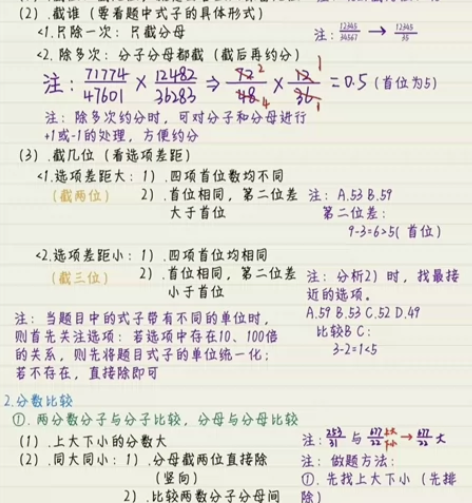 (2).截谁(要看题中式子的具体形式)
<1.只除一次:只截分母 注:12345/34567 → 12345/35
<2.除多次:分子分母都截(截后再约分)
注:71774/47601 × 12482/36283 ⇒ 72/48 × 12/36 = 0.5(首位为5)
2 4 1
注:除多次约分时,可对分子和分母进行
+1或-1的处理,方便约分
(3).截几位(看选项差距)
<1.选项差距大:1).四项首位数均不同
(截两位) 2).首位相同,第二位差 注:A.53 B.59
大于首位 第二位差:
9-3=6>5(首位)
<2.选项差距小:1).四项首位均相同
(截三位) 2).首位相同,第二位差 注:分析2)时,找最接
小于首位 近的选项。
A.59 B.53 C.52 D.49
注:当题目中的式子带有不同的单位时,
比较B C:
则首先关注选项:若选项中存在10、100倍
3-2=1<5
的关系,则先将题目式子的单位统一化;
若不存在,直接除即可
2.分数比较
①.两分数分子与分子比较,分母与分母比较
(1).上大下小的分数大 注:253/31 与 677/22 → 677/22 大
(2).同大同小:1).分母截两位直接除 注:做题方法:
(竖向) ①.先找上大下小(先排
2).比较两数分子分母间 除)